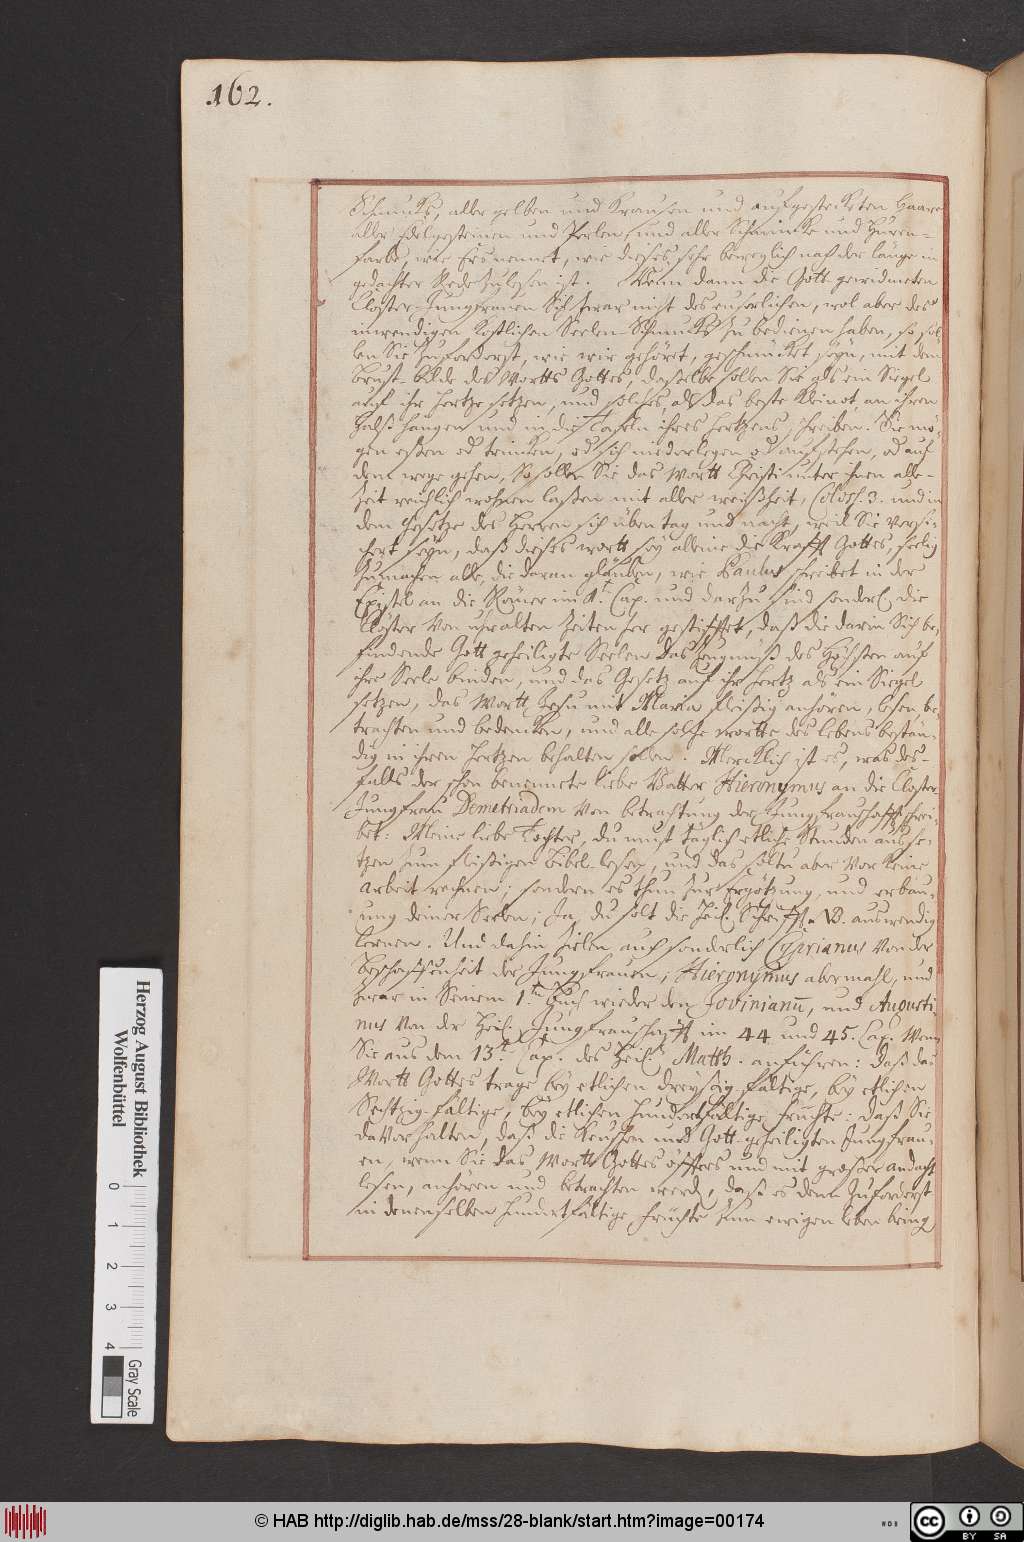 162.
Schmucks, aller gelben und Krausen und aufgesteckten Haare
aller Edelgesteinen und Perlen, und aller Schmincke und Huren-
farbe, wie Ers nennet, wie dieses sehr beweglich nach der länge in
gedachter Rede zulesen ist. Wenn dann die Gott gewidmeten
Closter-Jungfrauen Sich zwar nicht des euserlichen, wol aber des
inwendigen köstlichen Seelen-Schmucks zu bedienen haben, so sol-
len Sie zuforderst, wie wir gehöret, geschmücket seyn, mit dem
Brust-bilde des Wortts Gottes, dasselbe sollen Sie als ein Siegel
auf ihr Hertze setzen, und solches, als das beste Kleinot, an ihren
Halß hängen und in die Taffeln ihres Hertzens schreiben. Sie mö-
gen eßen od trincken, od sich niederlegen od aufstehen, od auf
dem wege gehen, So sollen Sie das Wortt Christi unter ihnen alle-
Zeit reichlich wohnen laßen mit aller weißheit, Coloss. 3. und in
dem Gesetze des Herren sich üben tag und nacht, weil Sie versi-
chert seyn, daß dieses wortt sey alleine die Krafft Gottes, seelig
zumachen alle, die daran gläuben, wie Paulus schreibet in der
Epistel an die Römer im 1.t Cap. und darzu sind sonderl. die
Clöster von uhralten Zeiten her gestifftet, daß die darin Sich be-
findende Gott geheiligte Seelen das Zeugnüß des Höchsten auf
ihre Seele binden, und das Gesetz auf ihr Hertz als ein Siegel
setzen, das Wortt Jesu mit Maria fleißig anhören, lesen, be-
trachten und bedencken, und alle solche wortte des lebens bestän-
dig in ihren Hertzen behalten sollen. Mercklich ist es, was des-
falls der schon benennete liebe Vatter Hieronymus an die Closter-
Jungfrau Demetriadem von betrachtung der Jungfrauschafft schrei-
bet: Meine liebe Tochter, du must täglich etliche Stunden ausse-
tzen zum fleißigen Bibel-lesen, und das soltu aber vor keine
arbeit rechnen; sondern es thun zur Ergötzung, und erbau-
ung deiner Seelen; Ja, du solt die Heil. Schrifft N. auswendig
lernen. Und dahin zielen auch sonderlich Cyprianus von der
Beschaffenheit der Jungfrauen, Hieronymus abermahl, und
zwar in Seinem 1.ten Buch wieder den Jovinianum, und Augusti
nus von der Heil. Jungfrauschafft im 44 und 45. Cap. Wenn
Sie aus dem 13.t Cap. des Heil. Matth. anführen: daß das
Wortt Gottes trage bey etlichen dreyßig-fältige, bey etlichen
Sechtzig-fältige, bey etlichen hundertfältige früchte: daß Sie
davor halten, daß die keuschen und Gott-geheiligten Jungfrau-
en, wenn Sie das Wortt Gottes öffters und mit grosser andacht
lesen, anhören und betrachten werd, daß es denn zuforderst
in denenselben hundertfältige früchte zum ewigen leben bring
Herzog August Bibliothek
Wolfenbüttel
0 1 2 3 4
Gray Scale
© HAB http://diglib.hab.de/mss/28-blank/start.htm?image=00174
WDB
cc BY SA